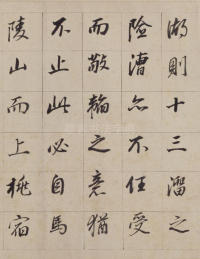 湖則十三溜之
險漕亦不任受
而敬翰之意猶
不止此必自馬
陵山而上桃宿